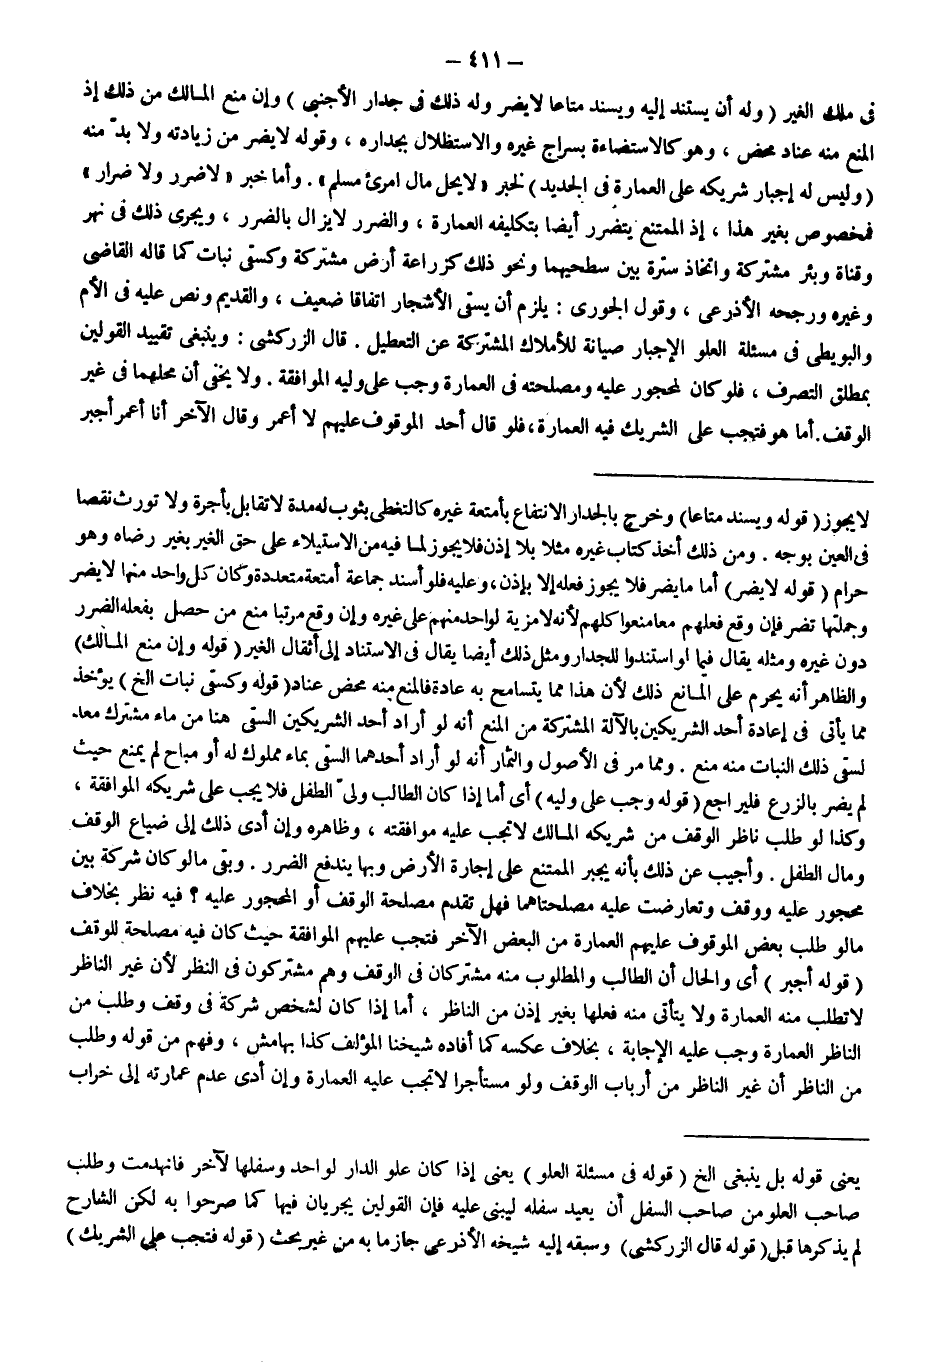 — ٤١١ —
فى ملك الغير ( وله أن يستند إليه ويسند متاعا لايضر وله ذلك فى جدار الأجنبى ) وإن منع المالك من ذلك إذ
المنع منه عناد محض ، وهو كالاستضاءة بسراج غيره والاستظلال بجداره ، وقوله لايضر من زيادته ولا بدّ منه
( وليس له إجبار شريكه على العمارة فى الجديد) لخبر « لايحل مال امرئ مسلم» . وأما خبر « لاضرر ولا ضرار »
فمخصوص بغير هذا ، إذ الممتنع يتضرر أيضا بتكليفه العمارة ، والضرر لايزال بالضرر ، ويجرى ذلك فى نهر
وقناة وبئر مشتركة واتخاذ سترة بين سطحيهما ونحو ذلك كزراعة أرض مشتركة وكسقى نبات كما قاله القاضى
وغيره ورجحه الأذرعى ، وقول الجورى : يلزم أن يسقى الأشجار اتفاقا ضعيف ، والقديم ونص عليه فى الأم
والبويطى فى مسئلة العلو الإجبار صيانة للأملاك المشتركة عن التعطيل . قال الزركشى : وينبغى تقييد القولين
بمطلق التصرف ، فلو كان لمحجور عليه ومصلحته فى العمارة وجب على وليه الموافقة . ولا يخفى أن محلهما فى غير
الوقف . أما هو فتجب على الشريك فيه العمارة ، فلو قال أحد الموقوف عليهم لا أعمر وقال الآخر أنا أعمر أجبر
لايجوز ( قوله ويسند متاعا) وخرج بالجدار الانتفاع بأمتعة غيره كالتغطى بثوب له مدة لاتقابل بأجرة ولا تورث نقصا
فى العين بوجه . ومن ذلك أخذ كتاب غيره مثلا بلا إذن فلايجوز لما فيه من الاستيلاء على حق الغير بغير رضاه وهو
حرام ( قوله لايضر) أما مايضر فلا يجوز فعله إلا بإذن ، وعليه فلو أسند جماعة أمتعة متعددة وكان كل واحد منها لايضر
وجملتها تضر فإن وقع فعلهم معا منعوا كلهم لأنه لامزية لواحد منهم على غيره وإن وقع مرتبا منع من حصل بفعله الضرر
دون غيره ومثله يقال فيما لو استندوا للجدار ومثل ذلك أيضا يقال فى الاستناد إلى أثقال الغير ( قوله وإن منع المالك)
والظاهر أنه يحرم على المانع ذلك لأن هذا مما يتسامح به عادة فالمنع منه محض عناد ( قوله وكسقى نبات الخ ) يؤخذ
مما يأتى فى إعادة أحد الشريكين بالآلة المشتركة من المنع أنه لو أراد أحد الشريكين السقى هنا من ماء مشترك معد
لسقى ذلك النبات منه منع . ومما مر فى الأصول والثمار أنه لو أراد أحدهما السقى بماء مملوك له أو مباح لم يمنع حيث
لم يضر بالزرع فليراجع ( قوله وجب على وليه ) أى أما إذا كان الطالب ولىّ الطفل فلا يجب على شريكه الموافقة ،
وكذا لو طلب ناظر الوقف من شريكه المالك لاتجب عليه موافقته ، وظاهره وإن أدى ذلك إلى ضياع الوقف
ومال الطفل . وأجيب عن ذلك بأنه يجبر الممتنع على إجارة الأرض وبها يندفع الضرر . وبقى مالو كان شركة بين
محجور عليه ووقف وتعارضت عليه مصلحتاهما فهل تقدم مصلحة الوقف أو المحجور عليه ؟ فيه نظر بخلاف
مالو طلب بعض الموقوف عليهم العمارة من البعض الآخر فتجب عليهم الموافقة حيث كان فيه مصلحة للوقف
( قوله أجبر ) أى والحال أن الطالب والمطلوب منه مشتركان فى الوقف وهم مشتركون فى النظر لأن غير الناظر
لاتطلب منه العمارة ولا يتأتى منه فعلها بغير إذن من الناظر ، أما إذا كان لشخص شركة فى وقف وطلب من
الناظر العمارة وجب عليه الإجابة ، بخلاف عكسه كما أفاده شيخنا المؤلف كذا بهامش ، وفهم من قوله وطلب
من الناظر أن غير الناظر من أرباب الوقف ولو مستأجرا لاتجب عليه العمارة وإن أدى عدم عمارته إلى خراب
يعنى قوله بل ينبغى الخ ( قوله فى مسئلة العلو ) يعنى إذا كان علو الدار لواحد وسفلها لآخر فانهدمت وطلب
صاحب العلو من صاحب السفل أن يعيد سفله ليبنى عليه فإن القولين يجريان فيها كما صرحوا به لكن الشارح
لم يذكرها قبل ( قوله قال الزركشى) وسبقه إليه شيخه الأذرعى جازما به من غير بحث ( قوله فتجب على الشريك )